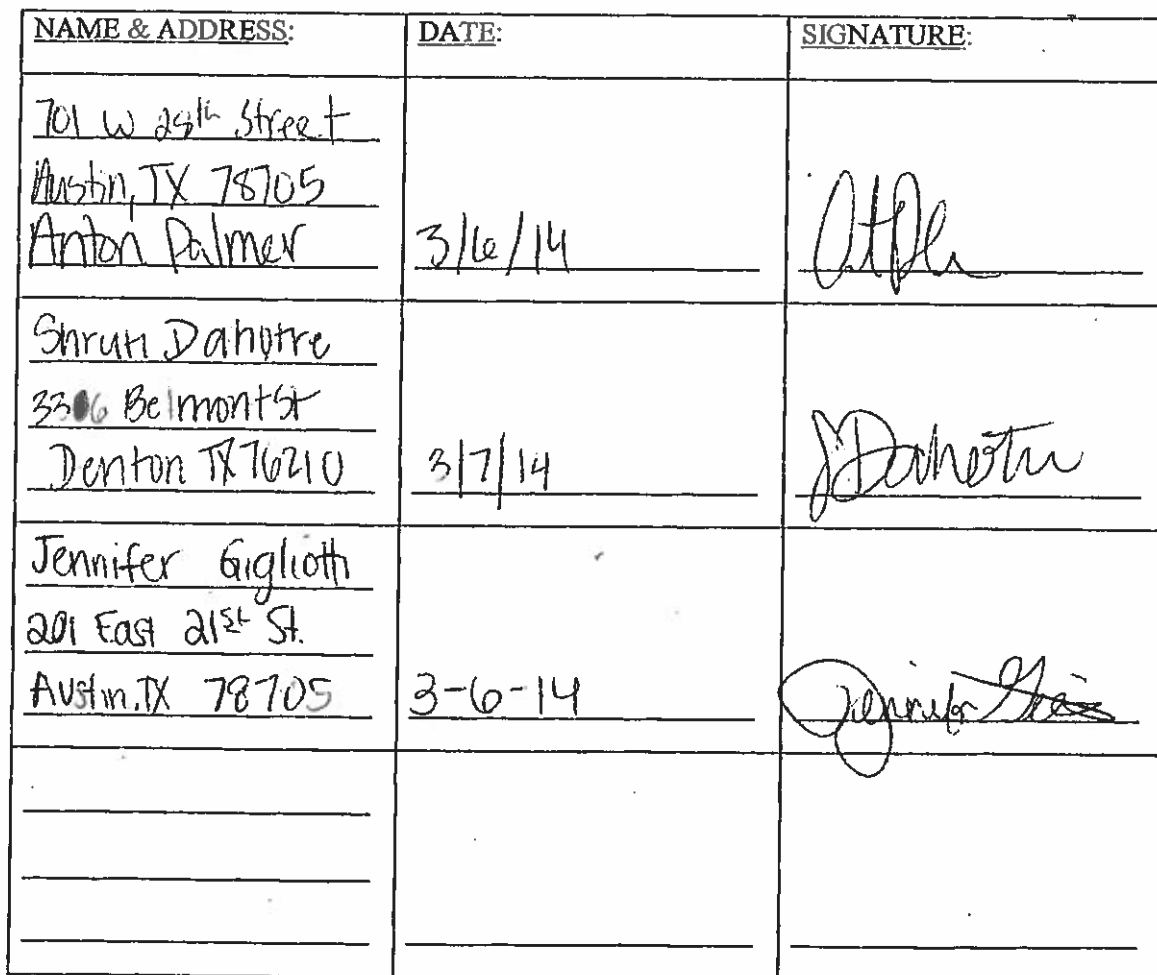 NAME & ADDRESS: DATE: SIGNATURE:
701 W 28th Street
Austin, TX 78705
Anton Palmer 3/6/14
Shruti Dahotre
3306 Belmont St
Denton TX 76210 3/7/14 SDahotre
Jennifer Gigliotti
201 East 21st St.
Austin, TX 78705 3-6-14 Jennifer